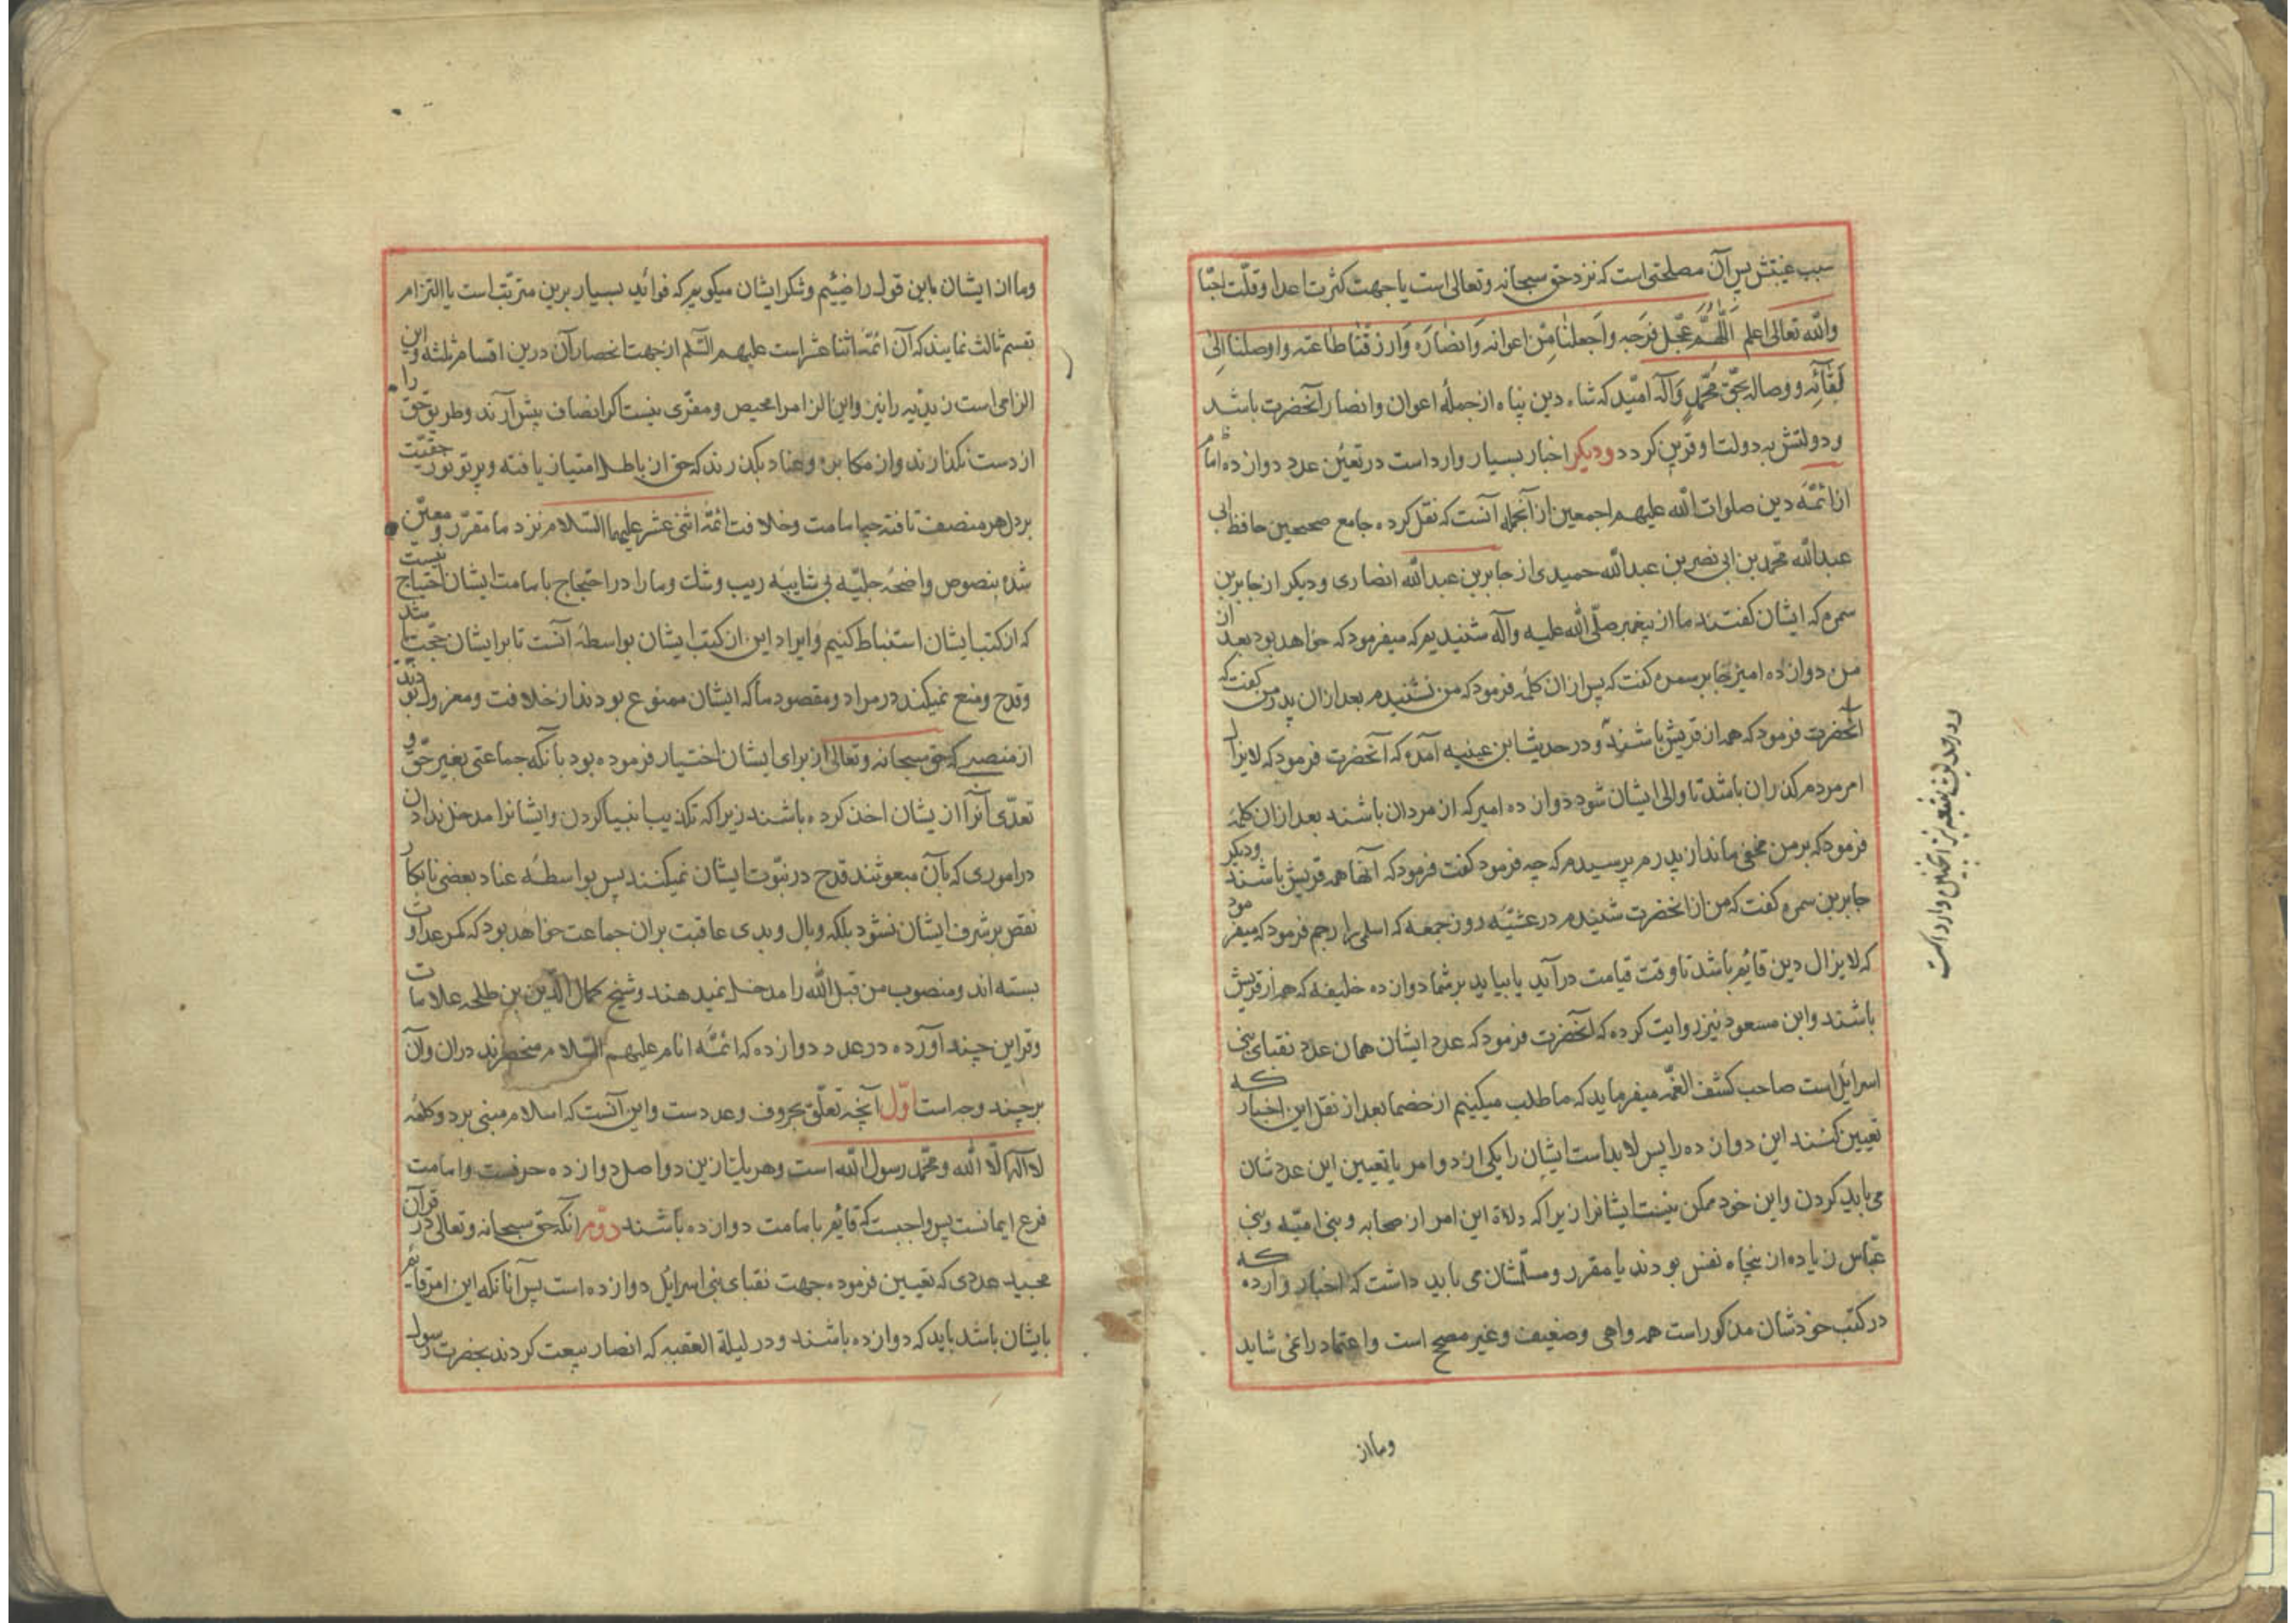 سبب غیبتش پس آن مصلحتی است که نزد حق سبحانه وتعالی است یا جهت کثرت اعدا وقلّت احبّا
والله تعالی اعلم اَللّٰهُمَّ عَجِّل فَرَجَه واَجعلنا مِّن اعوانه وَانصٰارَه وَارزقنٰا طاعته واوصلنا الیٰ
لقٰآئِه ووصاله بحقّ محمّدٍ وَآله امّید که شاه دین پناه از جملهٔ اعوان وانصار آنحضرت باشد
ودولتش به دولت او قرین کردد ودیکر اخبار بسیار وارد است در تعیّن عدد دوازده امام
از ائمّه دین صلوات الله علیهم اجمعین از آنجمله آنست که نقل کرده جامع صحیحین حافظ ابی
عبدالله محمّد بن ابی نصر بن عبدالله حمیدی از جابر بن عبدالله انصاری ودیکر از جابر بن
سمره که ایشان کفتند ما از پیغمبر صلّی الله علیه وآله شنیدیم که میفرمود که خواهد بود بعد از
من دوازده امیر جابر سمره کفت که پس از ان کلمه فرمود که من نشنیدم بعد ازان پدر من کفت که
آنحضرت فرمود که همه از قریش باشند ودر حدیث ابن عینیه آمده که آنحضرت فرمود که لایزال
امر مردم کذران باشد تا والی ایشان شود دوازده امیر که از مردان باشند بعد ازان کلمهٔ
فرمود که بر من مخفی ماند از پدرم پرسیدم که چه فرمود کفت فرمود که آنها همه قریش باشند ودیکر
جابر بن سمره کفت که من از انحضرت شنیدم در عشیّه روز جمعه که اسلمی را رجم فرمود که میفرمود
که لایزال دین قایم باشد تا وقت قیامت درآید یا بیاید بر شما دوازده خلیفه که همه از قریش
باشند وابن مسعود نیز روایت کرده که آنحضرت فرمود که عدد ایشان همان عدد نقبای بنی
اسرائیل است صاحب کشف الغمّه میفرماید که ما طلب میکینم از خصما بعد از نقل این اخبار که
تعیین کنند این دوازده را پس لابد است ایشان را یکی از دو امر یا تعیین این عددشان
می باید کردن واین خود ممکن نیست ایشانرا زیرا که ولاة این امر از صحابه وبنی امیّه وبنی
عبّاس زیاده از پنجاه نفس بودند یا مقرر ومسلّمشان می باید داشت که اخبار وارده که
در کتب خودشان مذکور است همه واهی وضعیف وغیر مصحح است واعتماد را نمی شاید
ودر حدیث شعبه نیز اینچنین وارد است
وما از
وما از ایشان باین قول راضیئیم وشکر ایشان میکوییم که فوائد بسیار برین مترتّب است یا التزام
بقسم ثالث نمایند که آن ائمّه اثنا عشر است علیهم السّلم از جهت انحصار آن درین اقسام ثلثه واین
الزامی است زیدیّه را نیز واین الزام را محیص ومفرّی نیست اکر انصاف پیش آرند وطریق حق را
از دست نکذارند واز مکابره وعناد بکذرند که حق از باطل امتیاز یافته وپرتو نور حقیّت
بر دل هر منصف تافته چه امامت وخلافت ائمّه اثنی عشر علیهم السّلام نزد ما مقرّر ومعیّن
شده بنصوص واضحهٔ جلیّه بی شایبهٔ ریب وشک وما را در احتجاج بامامت ایشان احتیاج نیست
که از کتب ایشان استنباط کنیم وایراد این از کتب ایشان بواسطهٔ آنست تا بر ایشان حجّت باشد
وقدح ومنع نمیکند در مراد ومقصود ما که ایشان ممنوع بودند از خلافت ومعزول بودند
از منصبی که حق سبحانه وتعالی از برای ایشان اختیار فرموده بود بآنکه جماعتی بغیر حقّ و
تعدّی آنرا از یشان اخذ کرده باشند زیرا که تکذیب انبیا کردن وایشانرا مدخل ندادن
در اموری که بآن مبعوثند قدح در نبوّت ایشان نمیکنند پس بواسطهٔ عناد بعضی تا بکار
نقص بر شرف ایشان نشود بلکه وبال وبدی عاقبت بران جماعت خواهد بود که کمر عداوت
بسته اند ومنصوب من قبل الله را مدخل نمیدهند وشیخ کمال الدّین بن طلحه علامات
وقراین چند آورده در عدد دوازده که ائمّهٔ انام علیهم السّلام منحصرند دران وآن
بر چند وجه است اوّل آنچه تعلّق بحروف وعدد ست واین آنست که اسلام مبنی بر دو کلمه
لا اله الّا الله ومحمّد رسول الله است وهر یک از ین دو اصل دوازده حرفست وامامت
فرع ایمانست پس واجبست که قایم بامامت دوازده باشند دوّم آنکه حق سبحانه وتعالی در قرآن
مجید عددی که تعیین فرموده جهت نقبای بنی اسرائیل دوازده است پس آنانکه این امر قایم
بایشان باشد باید که دوازده باشند ودر لیلة العقبه که انصار بیعت کردند بحضرت رسول